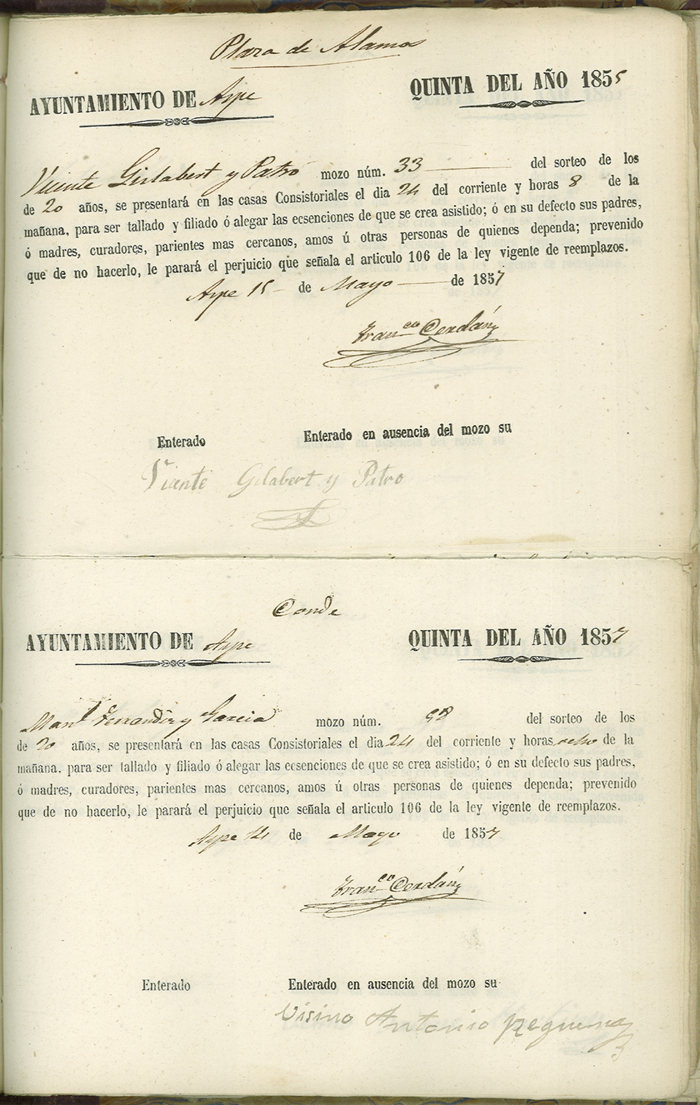 Plaza de Alamo
AYUNTAMIENTO DE Aspe QUINTA DEL AÑO 1855
Vicente Gislabert y Patro mozo núm. 33 del sorteo de los
de 20 años, se presentará en las casas Consistoriales el dia 24 del corriente y horas 8 de la
mañana, para ser tallado y filiado ó alegar las ecsenciones de que se crea asistido; ó en su defecto sus padres,
ó madres, curadores, parientes mas cercanos, amos ú otras personas de quienes dependa; prevenido
que de no hacerlo, le parará el perjuicio que señala el articulo 106 de la ley vigente de reemplazos.
Aspe 15 de Mayo de 1857
Fran.co Cerdán
Enterado Enterado en ausencia del mozo su
Viante Gilabert y Patro
Conde
AYUNTAMIENTO DE Aspe QUINTA DEL AÑO 1857
Man.l Ferrandiz y Garcia mozo núm. 98 del sorteo de los
de 20 años, se presentará en las casas Consistoriales el dia 24 del corriente y horas ocho de la
mañana, para ser tallado y filiado ó alegar las ecsenciones de que se crea asistido; ó en su defecto sus padres,
ó madres, curadores, parientes mas cercanos, amos ú otras personas de quienes dependa; prevenido
que de no hacerlo, le parará el perjuicio que señala el articulo 106 de la ley vigente de reemplazos.
Aspe de Mayo de 1857
Fran.co Cerdán
Enterado Enterado en ausencia del mozo su
Visino Antonio Requena